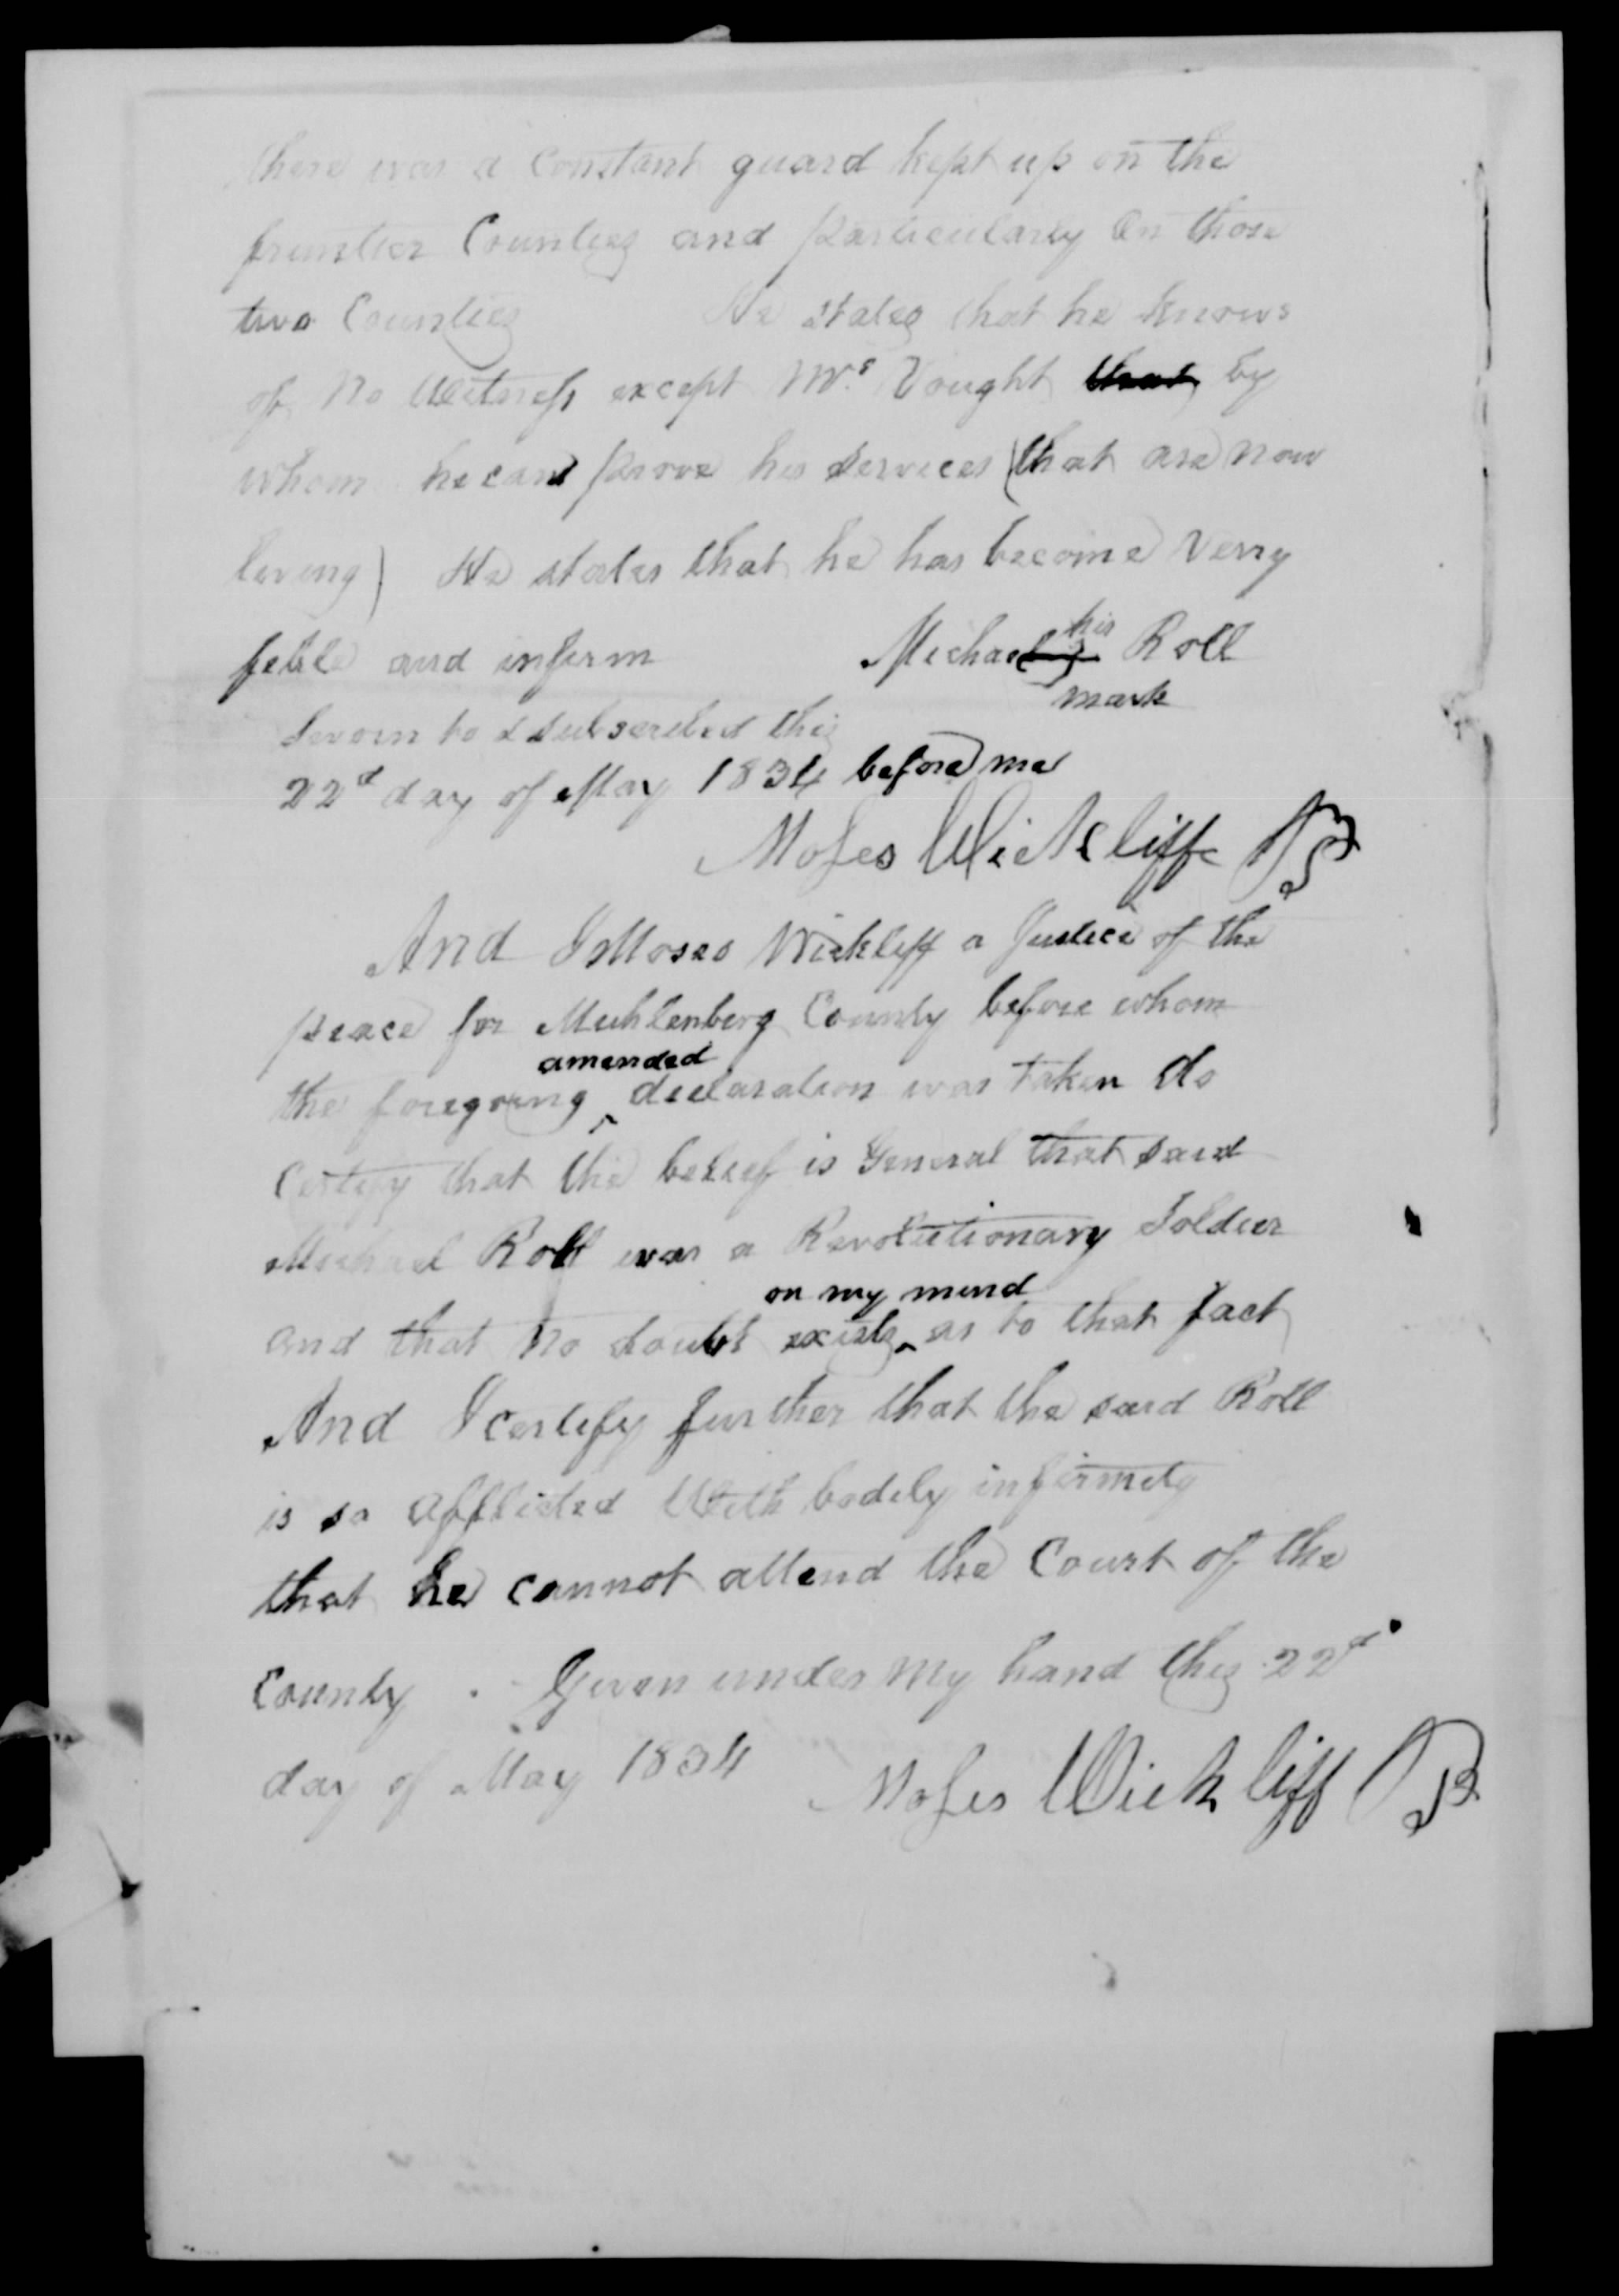 there was a constant guard kept up on the
fruntier Counties and particularly on those
two Counties He states that he knows
of no Witness except Mrs Vought that by
whom he can prove his services (that are now
living) He states that he has become verry
feble and infirm Michael his Roll
mark
Sworn to & subscribed this
22d day of May 1834 before me
Moses Wickcliffe JP
And I Moses Wickliff a Justice of the
peace for Muhlenberg County before whom
amended
the foregoing ^ declaration was taken do
Certify that the beleef is General that said
Michael Roll was a Revolutionary Soldier
on my mind
and that no doubt exists ^ as to that fact
And I certify further that the said Roll
is so afflicted With bodily infirmity
that he cannot attend the Court of the
County . Given under my hand this 22d
day of May 1834 Moses Wickliff JP